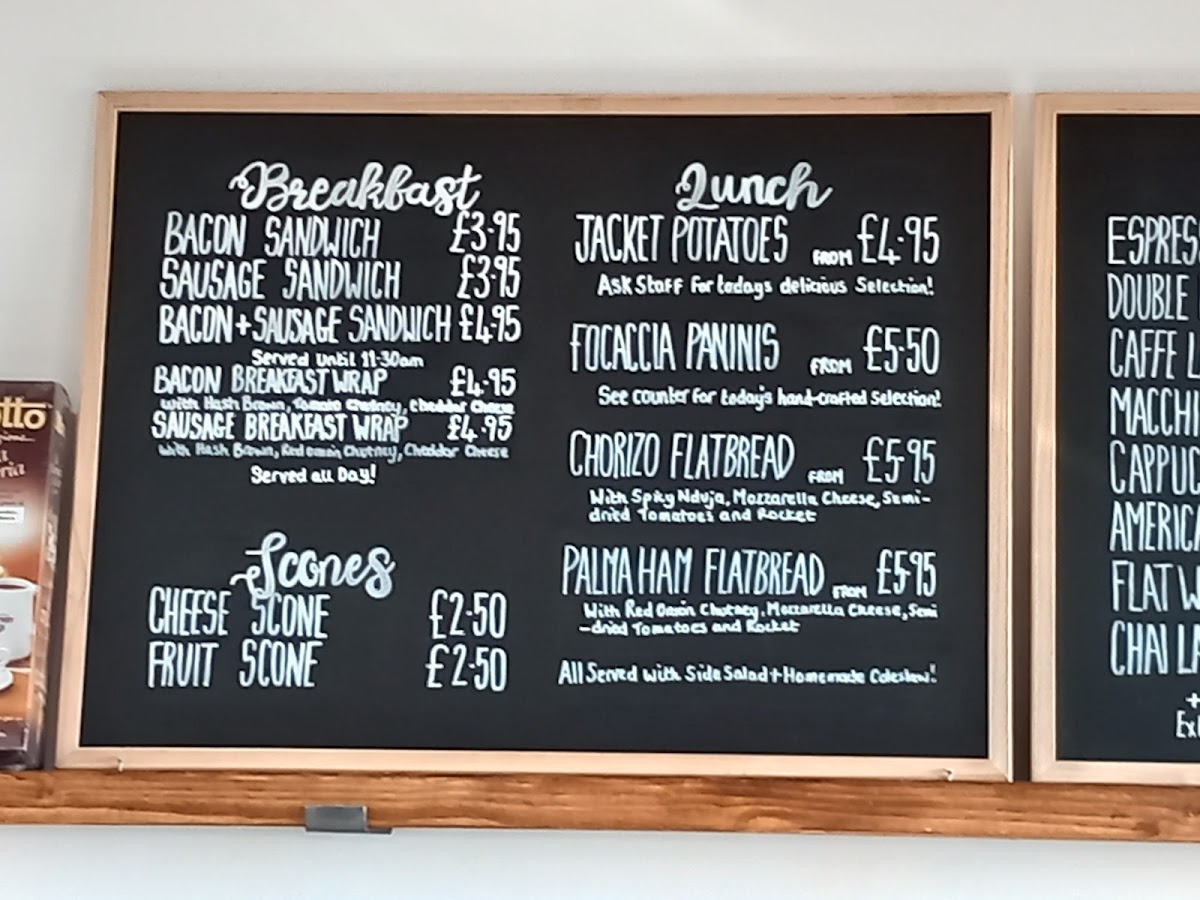 Breakfast
BACON SANDWICH £3.95
SAUSAGE SANDWICH £3.95
BACON + SAUSAGE SANDWICH £4.95
Served Until 11-30am
BACON BREAKFAST WRAP £4.95
With Hash Brown, Tomato Chutney, Cheddar Cheese
SAUSAGE BREAKFAST WRAP £4.95
With Hash Brown, Red onion Chutney, Cheddar Cheese
Served all Day!
Scones
CHEESE SCONE £2.50
FRUIT SCONE £2.50
Lunch
JACKET POTATOES FROM £4.95
Ask Staff For todays delicious Selection!
FOCACCIA PANINIS FROM £5.50
See counter for today's hand-crafted Selection!
CHORIZO FLATBREAD FROM £5.95
With Spicy Nduja, Mozzarella Cheese, Semi-
dried Tomatoes and Rocket
PALMA HAM FLATBREAD FROM £5.95
With Red Onion Chutney, Mozzarella Cheese, Semi
-dried Tomatoes and Rocket
All Served with Side Salad + Homemade Coleslaw!
ESPRES
DOUBLE
CAFFE L
MACCHI
CAPPUC
AMERICA
FLAT W
CHAI LA
+
Ex
otto